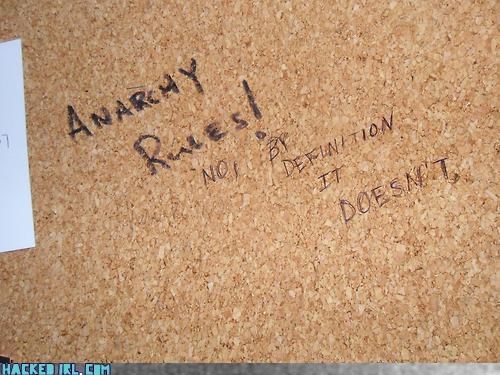 ANARCHY
RULES!
NO, BY
DEFINITION
IT
DOESN'T.
7
HACKED IRL.COM